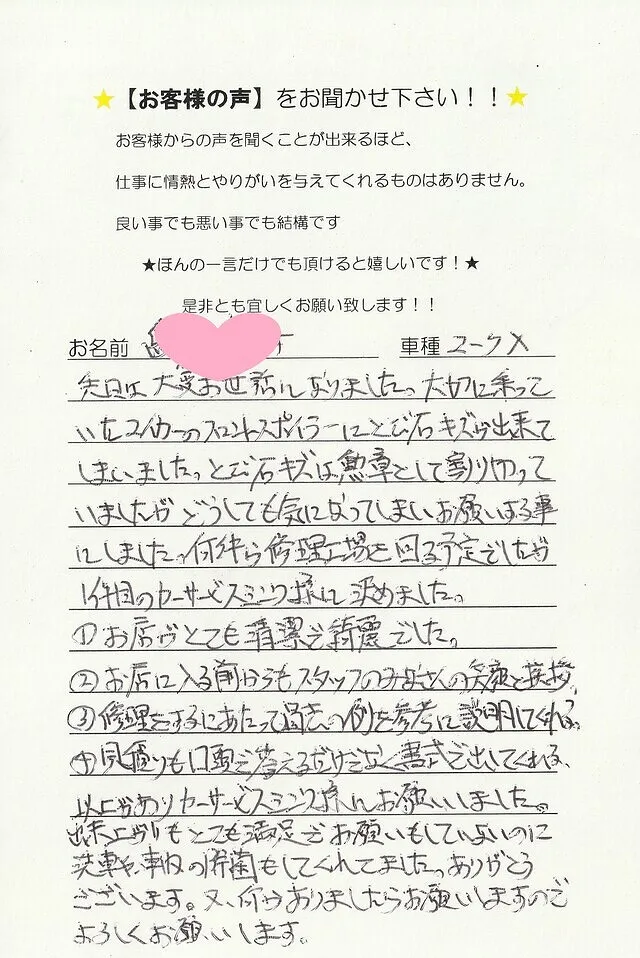 ★【お客様の声】をお聞かせ下さい！！★
お客様からの声を聞くことが出来るほど、
仕事に情熱とやりがいを与えてくれるものはありません。
良い事でも悪い事でも結構です
★ほんの一言だけでも頂けると嬉しいです！★
是非とも宜しくお願い致します！！
お名前 車種 マークX
先日は大変お世話になりました。大切に乗って
いたマイカーのフロントスポイラーにとび石キズが出来て
しまいました。とび石キズは勲章として割り切って
いましたがどうしても気になってしまいお願いする事
にしました。何件か修理工場を回る予定でしたが
1件目のカーサービスミシンク様に決めました。
①お店がとても清潔で綺麗でした。
②お店に入る前からもスタッフのみなさんの笑顔と挨拶、
③修理をするにあたって過去の例を参考に説明してくれる。
④見積りも口頭で答えるだけでなく書式で出してくれる、
以上がありカーサービスミシンク様にお願いいしました。
出来上がりもとても満足でお願いもしていないのに
洗車や車内の除菌もしてくれてました。ありがとう
ございます。又、何かありましたらお願いしますので
よろしくお願いします。